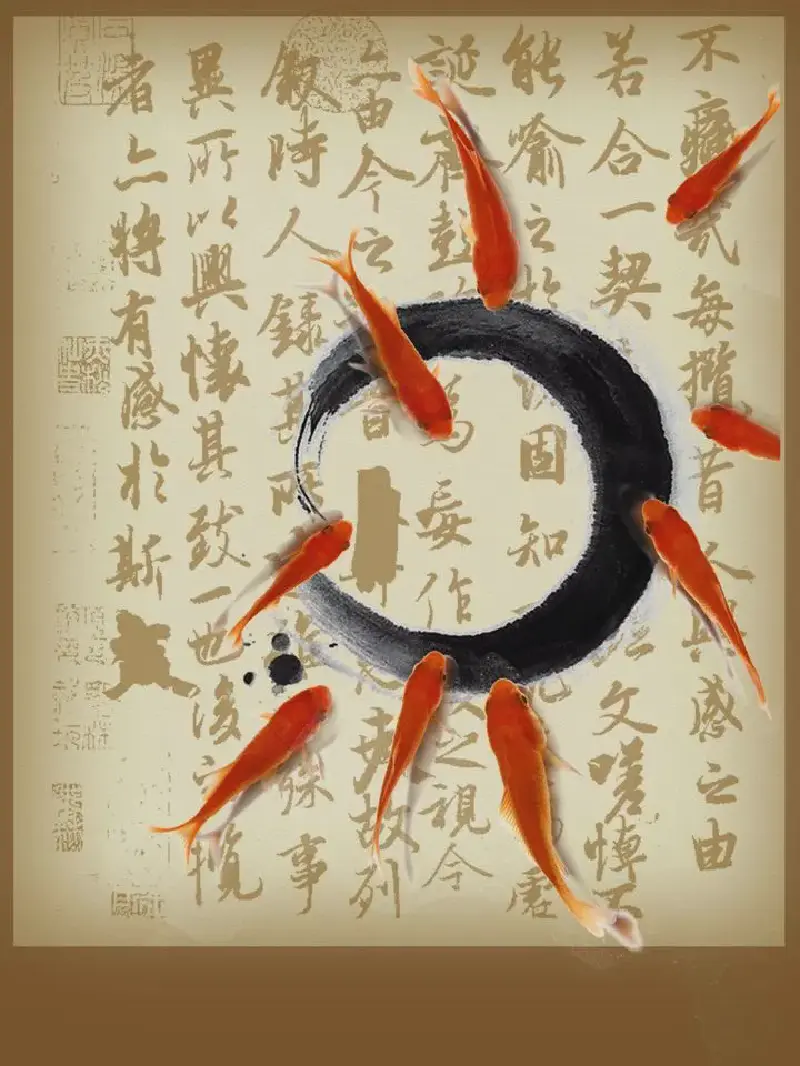 不痛哉每攬昔人興感之由
若合一契文嗟悼不
能喻之於固知虛
誕齊彭為妄作之視今
亦由今之昔夫故列
敘時人錄其所雖殊事
異所以興懷其致一也後之攬
者亦將有感於斯